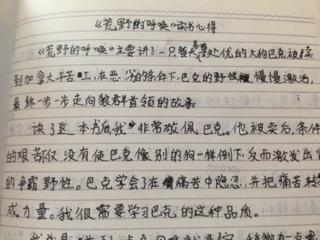 《荒野的呼唤》读书心得
《荒野的呼唤》主要讲了一只养尊处优的大狗巴克被卖
到加拿大干苦工,在恶劣的条件下,巴克的野性慢慢激活,
最终一步一步走向狼群首领的故事
读了这本书后我非常敬佩巴克。他被卖后,条件
的艰苦仅没有使巴克像别的狗一样倒下,反而激发出了
的争霸野性。巴克学会了在痛苦中隐忍,并把痛苦转
成力量。我很需要学习巴克的这种品质。